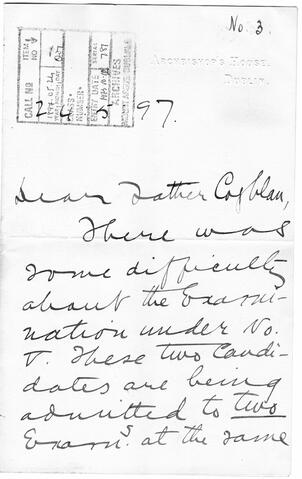 No. 3.
ARCHBISHOP'S HOUSE,
DUBLIN.
CALL NO
ITEM NO A
ENTRY DATE
SERIAL 787
ARCHIVES
24 5 97.
Dear Father Coghlan,
There was
some difficulty
about the Exami-
nation under No.
V. These two Candi-
dates are being
admitted to two
Examns. at the same